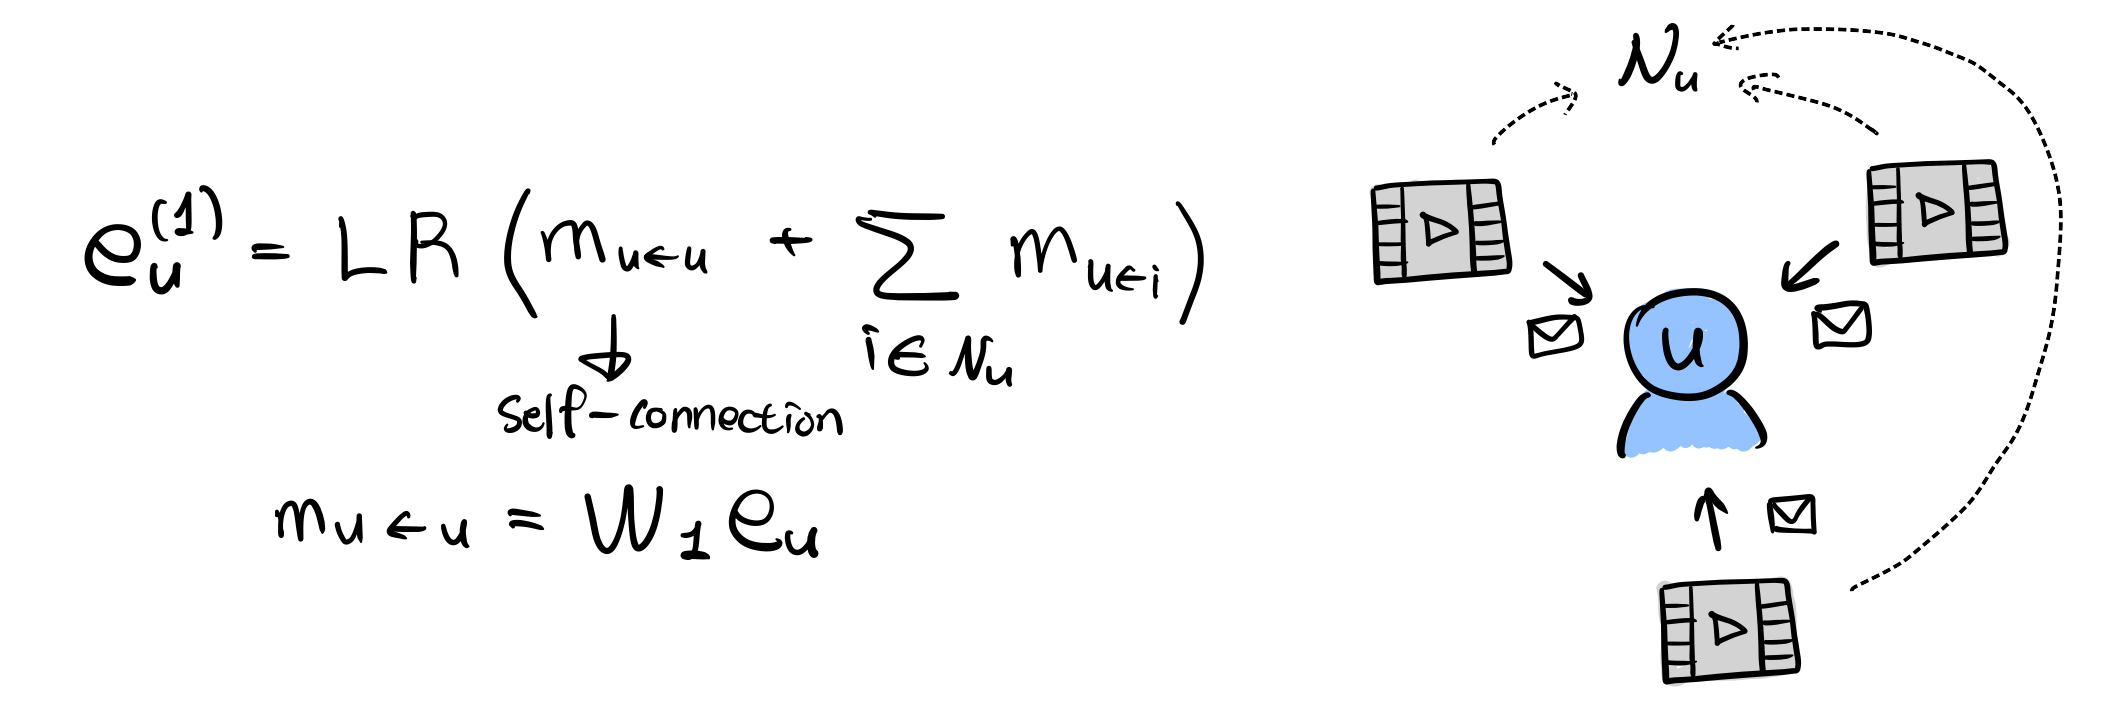 e_u^(1) = LR (m_u←u + ∑ m_u←i)
i ∈ N_u
self-connection
m_u←u = W_1 e_u
N_u
u